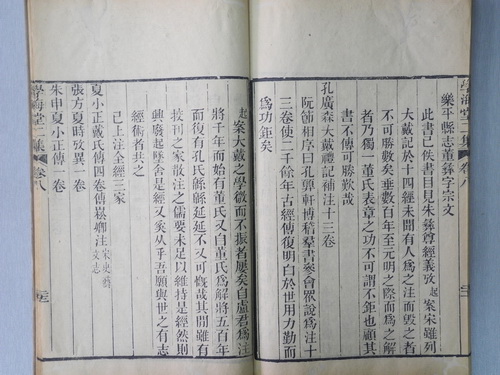 樂平縣志董彝字宗文
此書已佚書目見朱彝尊經義攷起案宋雖列
大戴記於十四經未聞有人爲之注而毀之者
不可勝數矣垂數百年至元明之際而爲之解
者乃獨一董氏表章之功不可謂不鉅也顧其
書不傳可勝歎哉
孔廣森大戴禮記補注十三卷
阮節相序曰孔㢲軒博稽羣書參會眾說爲注十
三卷使二千餘年古經傳復明白於世用力勤而
爲功鉅矣
起案大戴之學微而不振者屢矣自盧君爲注
將千年而始有董氏又自董氏爲解將五百年
而復有孔氏緜緜延延不絕可慨哉其閒雖有
校刊之家散注之儒要未足以維持是經然則
興廢起墜舍是經又奚從乎吾願與世之有志
經術者共之
已上注全經三家
夏小正戴氏傳四卷傳崧卿注宋史藝文志
張方夏時攷異一卷
朱申夏小正傳一卷
學海堂二集
卷八